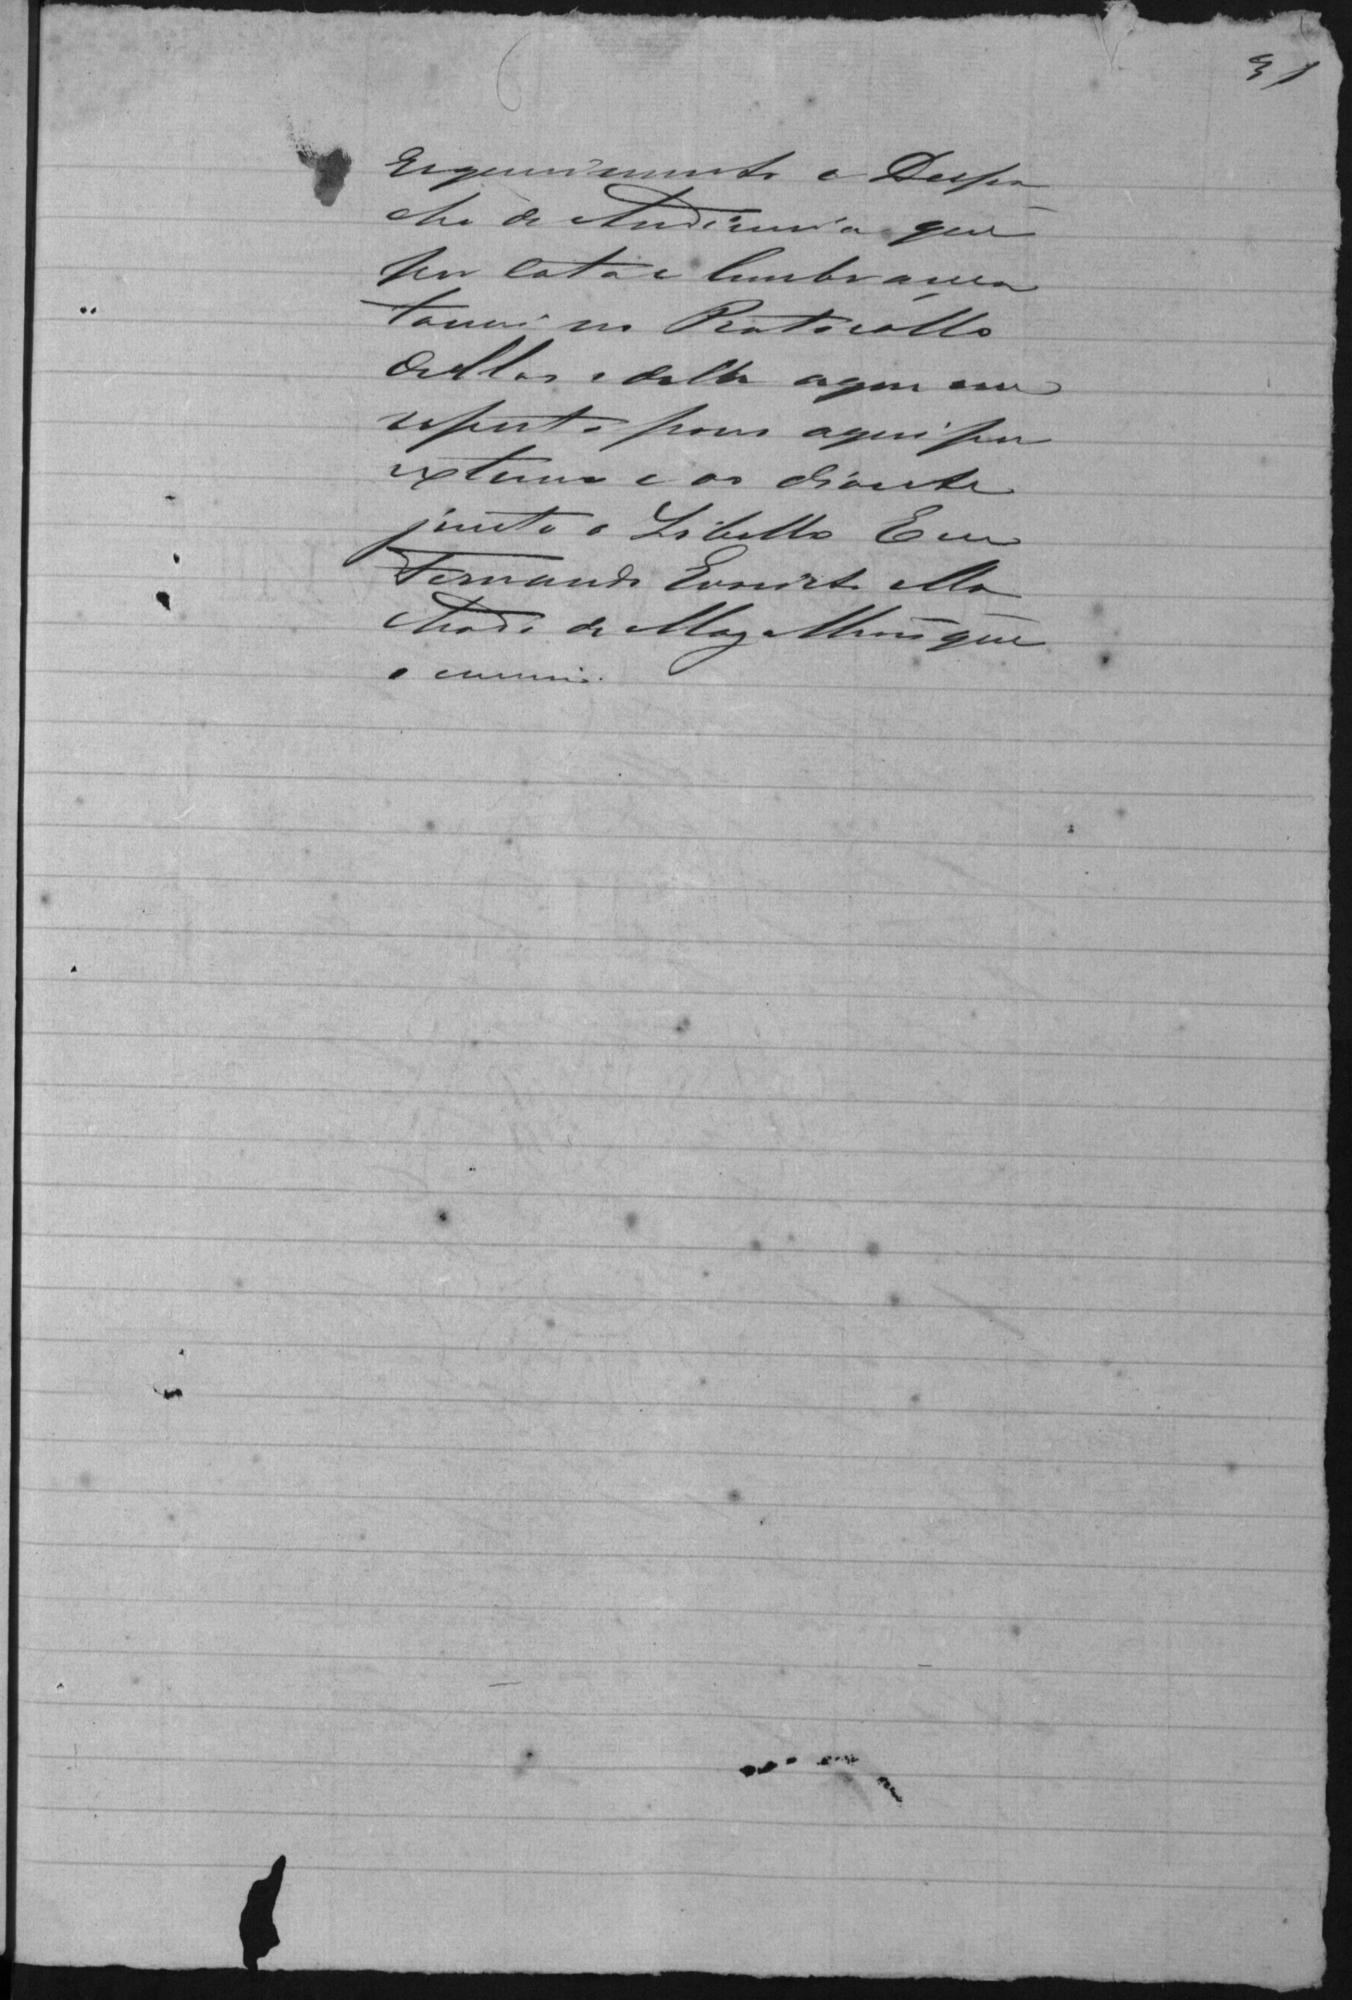 31
requerimento e Despa
cho de Audiencia que
por cota e lembrança
tomei no Protocollo
dellas e delle aqui me
reporto passo aqui por
extenso e ao diante
junto o Libello Eu
Fernando Evaristo Ma
chado de Mag
que
o escrevi.